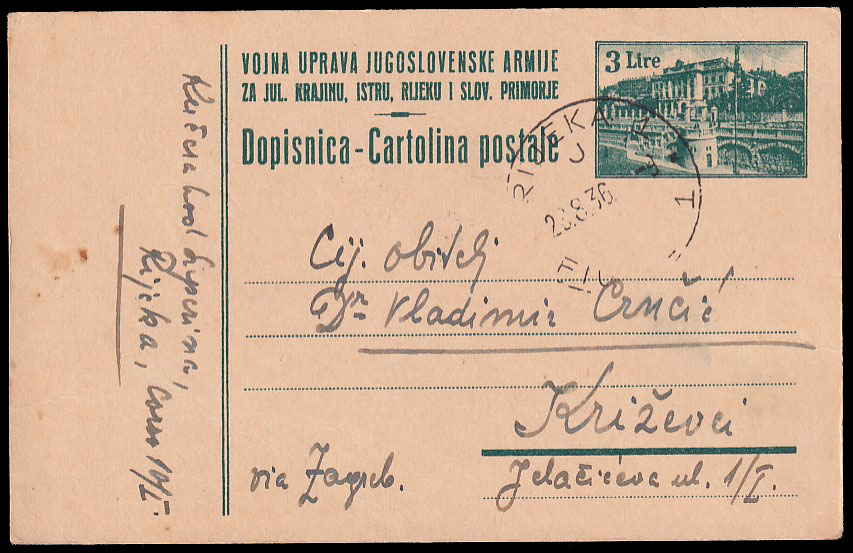 VOJNA UPRAVA JUGOSLOVENSKE ARMIJE
ZA JUL. KRAJINU, ISTRU, RIJEKU I SLOV. PRIMORJE
Dopisnica - Cartolina postale
3 Lire
RIJEKA
8.36
1
Cij. obitelj
Dr Vladimir Crnčić
Križevci
via Zagreb.
Jelačićeva ul. 1/I.
Rijeka, Corso